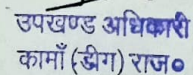 उपखण्ड अधिकारी
कामाँ (डीग) राज०